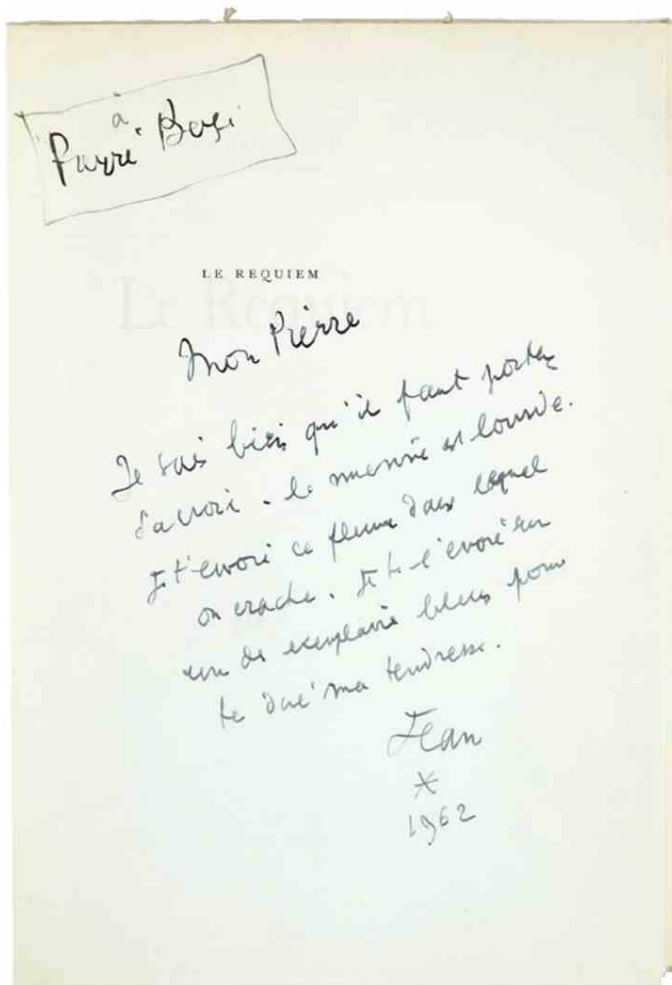 à
Pierre Bergé
LE REQUIEM
Le Requiem
Mon Pierre
Je sais bien qu'il faut porter
sa croix. la mienne est lourde.
Je t'envoie ce fleuve dans lequel
on crache. Je te l'envoie sur
un des exemplaires bleus pour
te dire ma tendresse.
Jean
*
1962